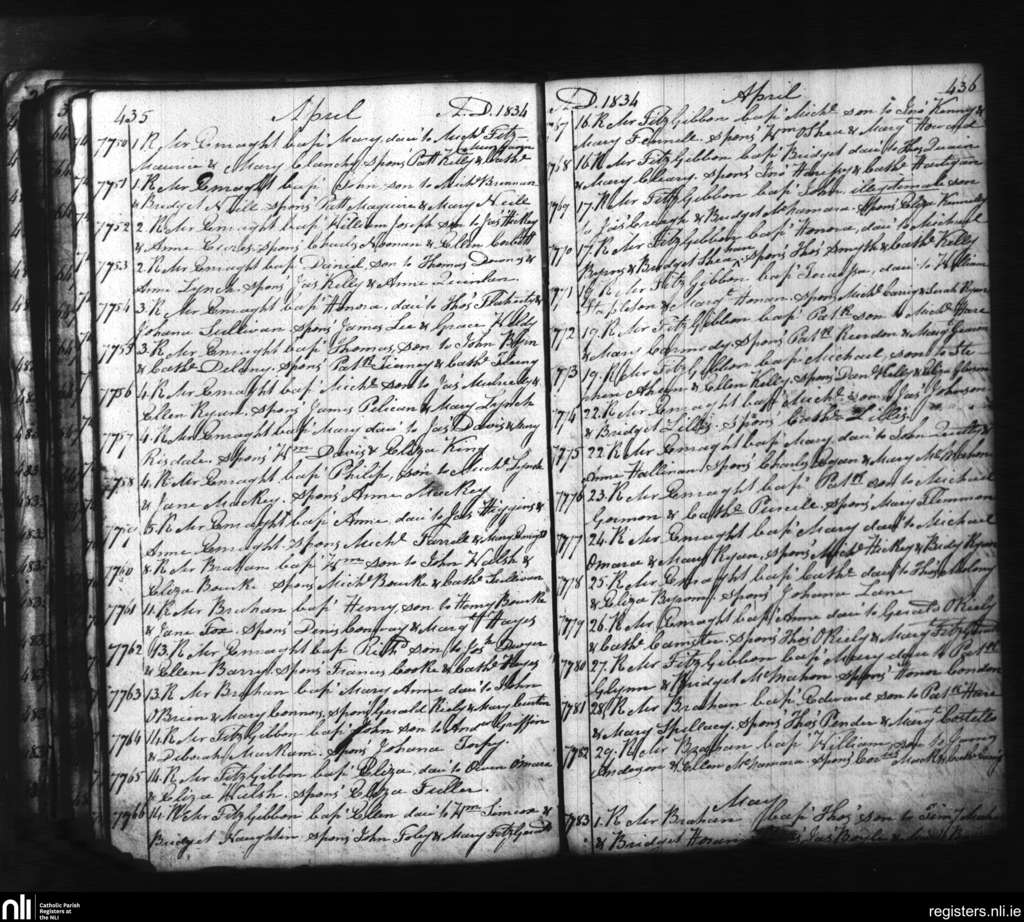 435 April A.D. 1834
7750 1. R Mr Enraght bap' Mary dau' to Mich' Fitz-
Maurice & Mary Clanchy spons' Patt Kelly & Cath'
7751 1. R Mr Enraght bap' John son to Mich' Brennan
& Bridget Neille spons' Patt Maguire & Mary Neille
7752 2. R Mr Enraght bap' William Joseph son to Jas Hickey
& Anne spons' Charles Noonan & Ellen Corbett
7753 2. R Mr Enraght bap' Daniel son to Thomas Downs &
Anne Lynch spons' Jas Kelly & Anne Quinlan
7754 3. R Mr Enraght bap' Honora dau' to Thos Flaherty &
Johana Sullivan spons' James Lee & Grace
7755 3. R Mr Enraght bap' Thomas son to John
& Cath' Delany spons' Patt Tierney & Cath'
7756 4. R Mr Enraght bap' Mich' son to Jas &
Ellen Ryan spons' James Pelican & Mary Lynch
7757 4. R Mr Enraght bap' Mary dau' to Jas Davis & Mary
Risdale spons' Wm Davis & Eliza King
7758 4. R Mr Enraght bap' Philip son to Mich' Lynch
& Jane Mackey spons' Anne Mackey
5. R Mr Enraght bap' Anne dau' to Jas Higgins &
Anne Enraght spons' Mich' Farrell & Mary
7760 8. R Mr Brahan bap' Wm son to John Walsh &
Eliza Bourke spons' Mich' Bourke & Cath' Sullivan
7761 11. R Mr Brahan bap' Henry son to Henry Bourke
& Jane Fox spons' Denis Conway & Marg't Hayes
7762 13. R Mr Enraght bap' son to Jos' Dwyer
& Ellen Barry spons' Francis Cooke & Cath' Hayes
7763 13. R Mr Brahan bap' Mary Anne dau' to John
OBrien & Mary Connors spons' Gerald Riely & Mary
7764 14. R Mr FitzGibbon bap' John son to And'w Griffin
& Deborah Markam spons' Johana Torpy.
7765 14. R Mr FitzGibbon bap' Eliza dau' to Owen Omara
& Eliza Walsh spons' Eliza Fuller.
7766 14. R Mr FitzGibbon bap' Ellen dau' to Wm &
Bridget Naughten spons' John Foley & Mary FitzGerald
A.D. 1834 April 436
67 16. R Mr FitzGibbon bap' Mich' son to Jno' Kenny &
Mary spons' Wm Shea & Mary Howard
68 16. R Mr FitzGibbon bap' Bridget dau' to Thos Quain
& Mary Cleary spons' Jno' & Cath' Hartigan
7769 17. R Mr FitzGibbon bap' John illegitimate son
to Jas Creagh & Bridget McNamara spons' Eliza Kennedy
7770 17. R Mr FitzGibbon bap' Honora dau' to Michael
Byrns & Bridget Sheahan spons' Thos Smyth & Cath' Kelly
7771 19. R Mr FitzGibbon bap' dau' to William
Stapleton & Marg't Honan spons' Mich' & Sarah Ryan
7772 19. R Mr FitzGibbon bap' Patk son to Mich' Hare
& Mary Carmody spons' Patk Reardon & Mary
7773 19. R Mr FitzGibbon bap' Michael son to Ste-
phen Ahern & Ellen Kelly spons' Dan Healy & Eliza
7774 22. R Mr Enraght bap' Mich' son to Jas Johnson
& Bridget Lillis spons' Cath' Lillis
7775 22. R Mr Enraght bap' Mary dau' to John &
Anne Hallinan spons' Charles Egan & Mary McMahon
7776 23. R Mr Enraght bap' Patk son to Michael
Gorman & Cath' Purcile spons' Mary Slimmon
7777 24. R Mr Enraght bap' Mary dau' to Michael
Omara & Mary Ryan spons' Mich' Hickey & Bidy Ryan
7778 25. R Mr Enraght bap' Cath' dau' to Thos Molony
& Eliza Byrom spons' Johana Lane
7779 26. R Mr Enraght bap' Anne dau' to Gerald O'Riely
& Cath' spons' Thos O'Riely & Marg't FitzGerald
7780 27. R Mr FitzGibbon bap' Mary dau' to Patk
Glynn & Bridget McMahon spons' Honor Condon
7781 28. R Mr Brahan bap' Edward son to Patk Hare
& Mary Spellacy spons' Thos Pender & Marg't Costello
7782 29. R Mr Brahan bap' William son to
Anderson & Ellen McNamara spons' Mack & Cath'
May
7783 1. R Mr Brahan bap' Thos son to Tim
& Bridget Horan spons' Jas Boyle &
nli
Catholic Parish
Registers at
the NLI
registers.nli.ie